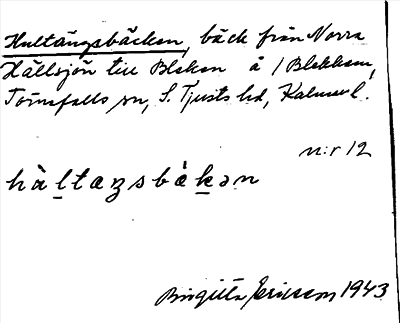 Hultängsbäcken, bäck från Norra
Hällsjön till Bleken å / Blekhem,
Törnsfalls sn, S. Tjusts hd, Kalmar l.
n:r 12
hàltaŋsbɛ̀kən
Birgitta Ericsson 1943